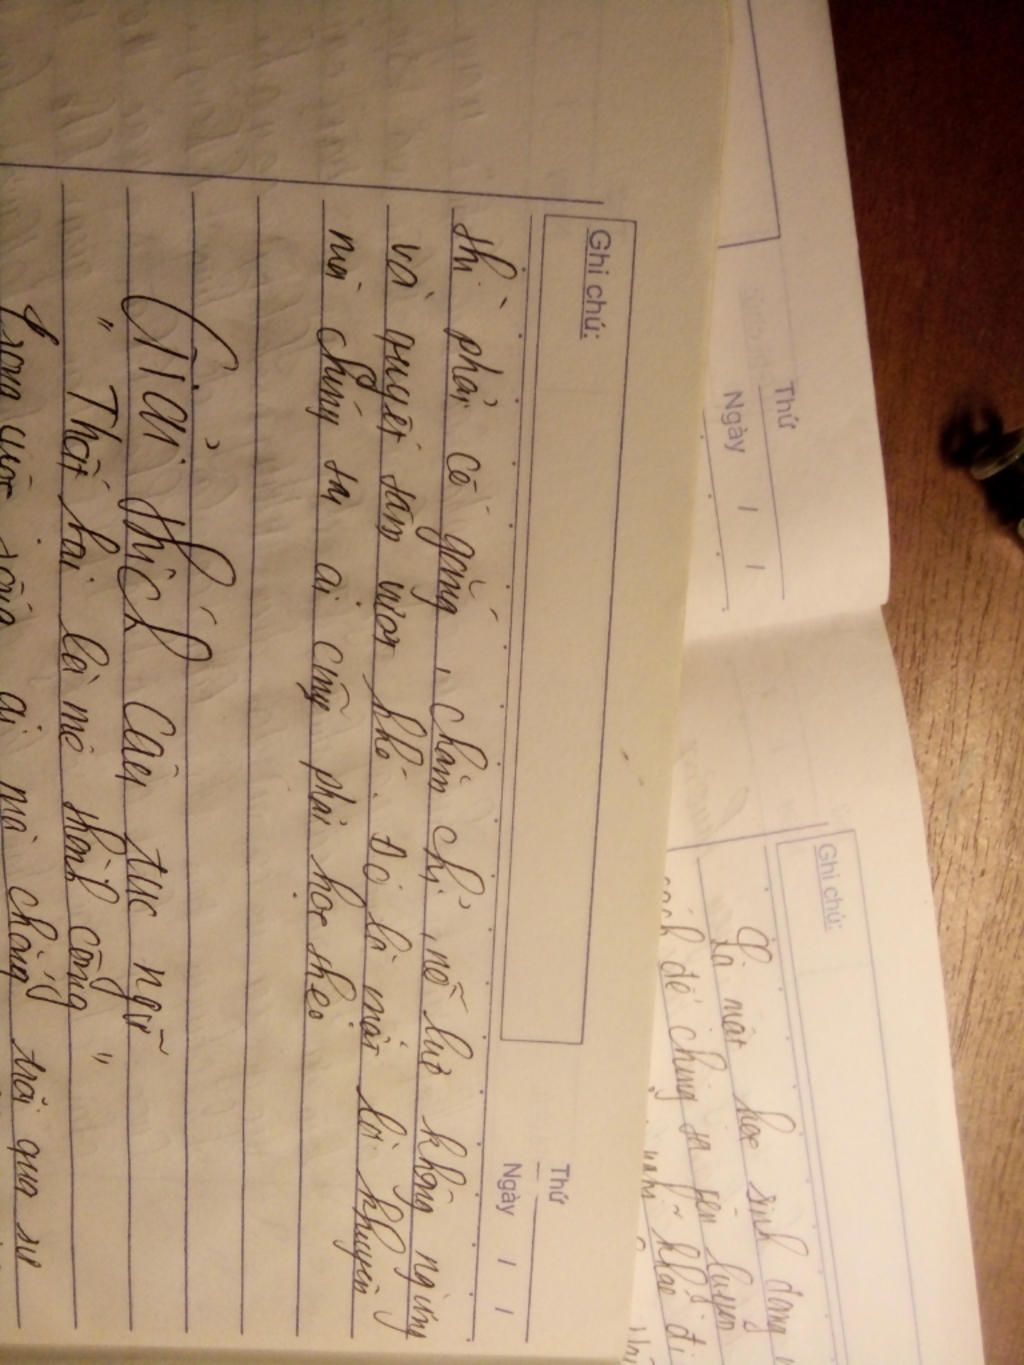 Thứ
Ngày / /
Ghi chú:
Là một học sinh đang
để chúng ta rèn luyện
khắc đi
Ghi chú:
Thứ
Ngày / /
thì phải cố gắng, chăm chỉ, nỗ lực không ngừng
và quyết tâm vượt khó. Đó là một lời khuyên
mà chúng ta ai cũng phải học theo.
Giải thích câu tục ngữ
" Thất bại là mẹ thành công "
Trong cuộc sống ai mà chẳng trải qua sự